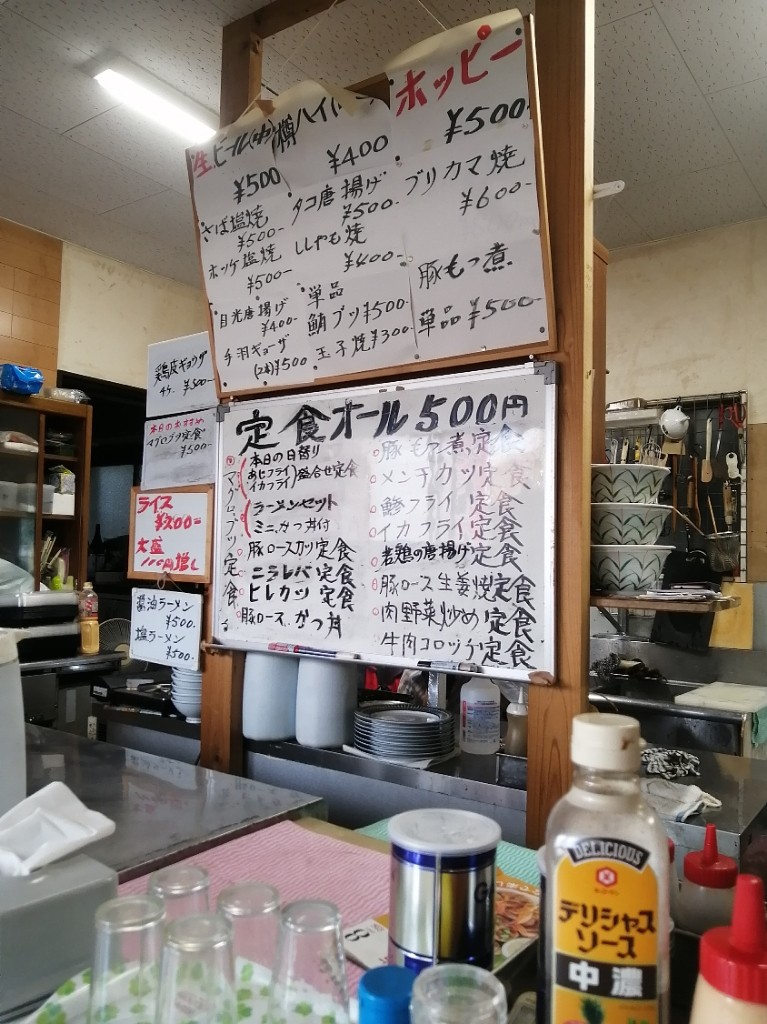 生ビール(中)
¥500
さば塩焼
¥500-
ホッケ塩焼
¥500-
目光唐揚げ
¥400-
手羽ギョーザ
(2本)¥500
樽ハイ
¥400
タコ唐揚げ
¥500-
ししゃも焼
¥400-
単品
鮪ブツ¥500-
玉子焼¥300-
ホッピー
¥500-
ブリカマ焼
¥600-
豚もつ煮
単品¥500-
鶏皮ギョウザ
4ヶ ¥500-
本日のおすすめ
マグロブツ定食
¥500-
ライス
¥200=
大盛
100円増し
醤油ラーメン
¥500.
塩ラーメン
¥500.
定食オール500円
マグロブツ定食
本日の日替り
あじフライ
イカフライ
盛合せ定食
ラーメンセット
ミニかつ丼付
豚ロースカツ定食
ニラレバ定食
ヒレカツ定食
豚ロースかつ丼
豚もつ煮定食
メンチカツ定食
鯵フライ定食
イカフライ定食
若鶏の唐揚げ定食
豚ロース生姜焼定食
肉野菜炒め定食
牛肉コロッケ定食
DELICIOUS
デリシャス
ソース
中濃